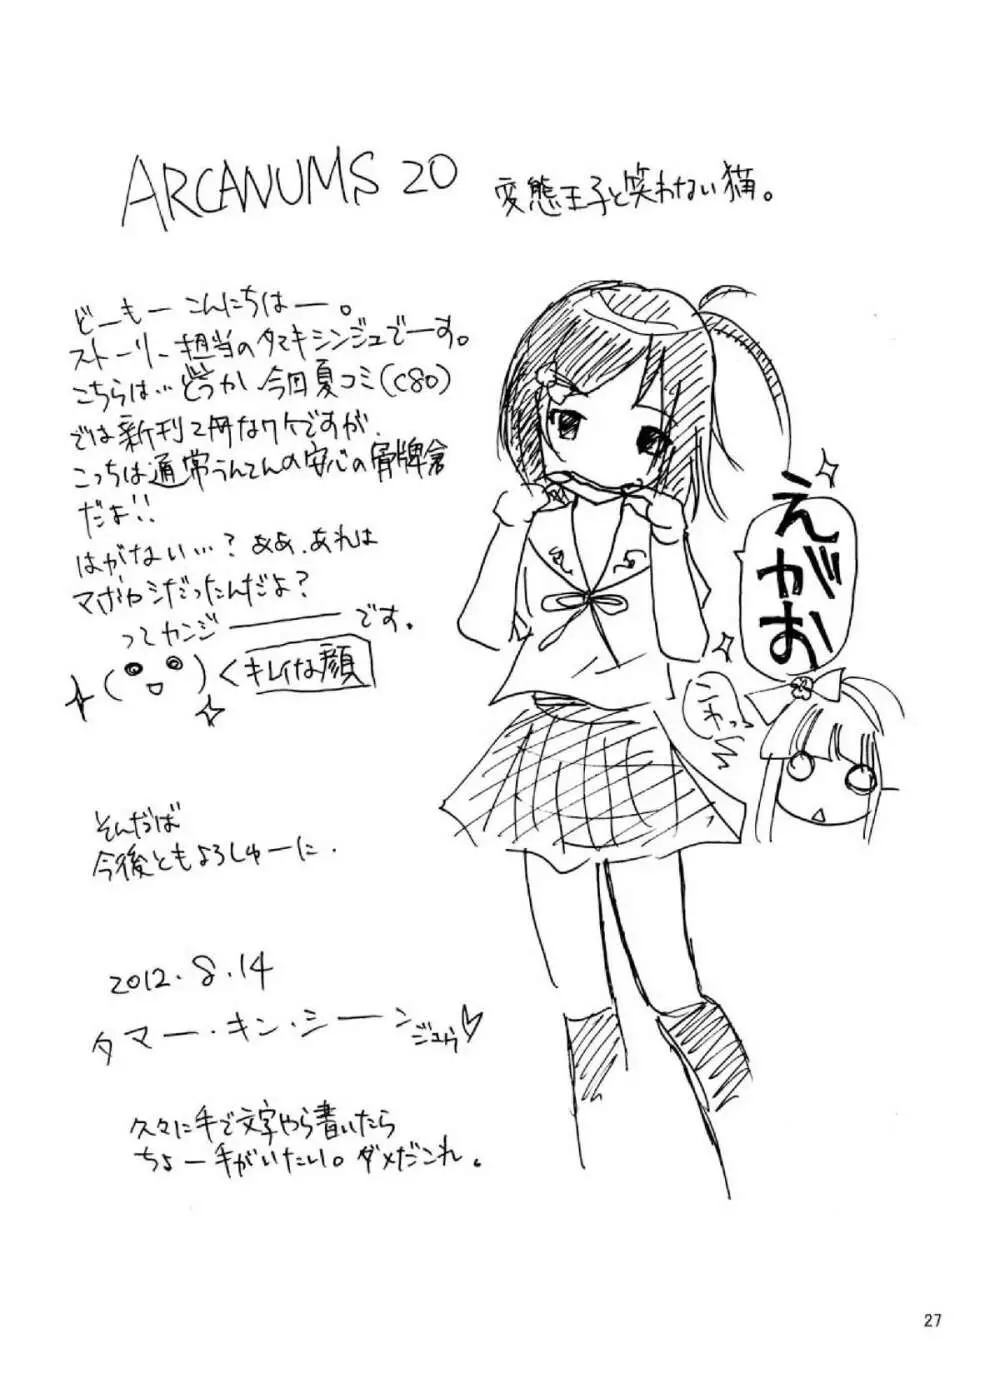 ARCANUMS 20
変態王子と笑わない猫。
どーもー こんにちはー。
ストーリー担当のタマキシンジュでーす。
こちらは…どうか 今回夏コミ(C80)
では新刊2冊なワケですが、
こっちは通常うんてんの安心の骨牌倉
だよ!!
はがない…? ああ、あれは
マボロシだったんだよ?
ってカンジーーーーです。
(・ワ・)<キレイな顔
えがお
これっ
そんだば
今後ともよろしゅーに.
2012.8.14
タマー・キン・シーンジュウ♡
久々に手で文字やら書いたら
ちょー手がいたい。ダメだこれ。
27